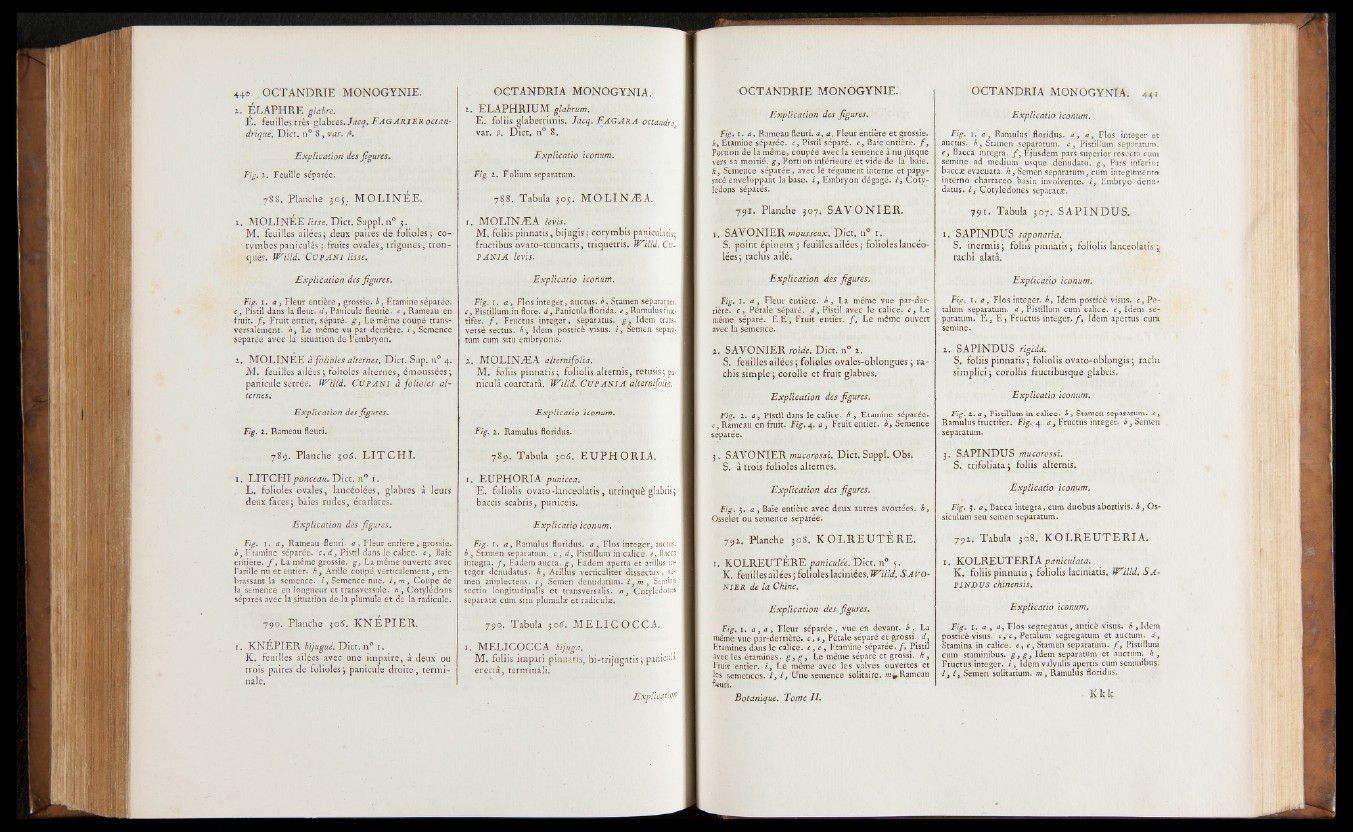 440 OCTANDRIE MONOGYNIE.
2. ÉLAPHRE glabre.
É. feuilles très-glabres. Jacq. FAGARIER octan-
drique. Dict. n° 8, var. β.
Explication des figures.
Fig. 2. Feuille séparée.
788. Planche 305. MOLINÉE.
1. MOLINÉE lisse. Dict. Suppl. n° 3.
M. feuilles ailées; deux paires de folioles; co-
rymbes paniculés; fruits ovales, trigones, tron-
qués. Willd. CUPANI lisse.
Explication des figures.
Fig. 1. a, Fleur entière, grossie. b, Etamine séparée.
c, Pistil dans la fleur. d, Panicule fleurie. e, Rameau en
fruit. f, Fruit entier, séparé. g, Le même coupé trans-
versalement. h, Le même vu par-derrière. i, Semence
séparée avec la situation de l'embryon.
2. MOLINÉE à folioles alternes. Dict. Sup. n° 4.
M. feuilles ailées; folioles alternes, émoussées;
panicule serrée. Willd. CUPANI à folioles al-
ternes.
Explication des figures.
Fig. 2. Rameau fleuri.
789. Planche 306. LITCHI.
1. LITCHI ponceau. Dict. n° 1.
L. folioles ovales, lancéolées, glabres à leurs
deux faces; baies rudes, écarlates.
Explication des figures.
Fig. 1. a, Rameau fleuri. a, Fleur entière, grossie.
b, Etamine séparée. c, d, Pistil dans le calice. e, Baie
entière. f, La même grossie. g, La même ouverte avec
l'arille nu et entier. h, Arille coupé verticalement, em-
brassant la semence. i, Semence nue. l, m, Coupe de
la semence en longueur et transversale. n, Cotylédons
séparés avec la situation de la plumule et de la radicule.
790. Planche 306. KNÉPIER.
1. KNÉPIER bijugué. Dict. n° 1.
K. feuilles ailées avec une impaire, à deux ou
trois paires de folioles; panicule droite, termi-
nale.
OCTANDRIA MONOGYNIA.
2. ELAPHRIUM glabrum.
E. foliis glaberrimis. Jacq. FAGARA octandra,
var. β. Dict. n° 8.
Explicatio iconum.
Fig. 2. Folium separatum.
788. Tabula 305. MOLINÆA.
1. MOLINÆA levis.
M. foliis pinnatis, bijugis; corymbis paniculatis;
fructibus ovato-truncatis, triquetris. Willd. CU-
PANIA levis.
Explicatio iconum.
Fig. 1. a, Flos integer, auctus. b, Stamen separatum.
c, Pistillum in flore. d, Panicula florida. e, Ramulus fruc-
tifer. f, Fructus integer, separatus. g, Idem trans-
versè sectus. h, Idem posticè visus. i, Semen separa-
tum cum situ embryonis.
2. MOLINÆA alternifolia.
M. foliis pinnatis; foliolis alternis, retusis; pa-
niculâ coarctatâ. Willd. CUPANIA alternifolia.
Explicatio iconum.
Fig. 2. Ramulus floridus.
789. Tabula 306. EUPHORIA.
1. EUPHORIA punicea.
E. foliolis ovato-lanceolatis, utrinquè glabris;
baccis scabris, puniceis.
Explicatio iconum.
Fig. 1. a, Ramulus floridus. a, Flos integer, auctus.
b, Stamen separatum. c, d, Pistillum in calice. e, Bacca
integra. f, Eadem aucta. g, Eadem aperta et arillus in-
teger denudatus. h, Arillus verticaliter dissectus, se-
men amplectens. i, Semen denudatum. l, m, Seminis
sectio longitudinalis et transversalis. n, Cotyledones
separatæ cum situ plumulæ et radiculæ.
790. Tabula 306. MELICOCCA.
1. MELICOCCA bijuga.
M. foliis impari pinnatis, bi-trijugatis; paniculâ
erectâ, terminali.
Explication
OCTANDRIE MONOGYNIE.
Explication des figures.
Fig. 1. a, Rameau fleuri. a, a, Fleur entière et grossie.
b, Etamine séparée. c, Pistil séparé. e, Baie entière. f,
Portion de la même, coupée avec la semence à nu jusque
vers sa moitié. g, Portion inférieure et vide de la baie.
h, Semence séparée, avec le tégument interne et papy-
racé enveloppant la base. i, Embryon dégagé. l, Coty-
lédons séparés.
791. Planche 307. SAVONIER.
1. SAVONIER mousseux. Dict. n° 1.
S. point épineux; feuilles ailées; folioles lancéo-
lées; rachis ailé.
Explication des figures.
Fig. 1. a, Fleur entière. b, La même vue par-der-
rière. c, Pétale séparé. d, Pistil avec le calice. e, Le
même séparé. E E, Fruit entier. f, Le même ouvert
avec la semence.
2. SAVONIER roide. Dict. n° 2.
S. feuilles ailées; folioles ovales-oblongues; ra-
chis simple; corolle et fruit glabres.
Explication des figures.
Fig. 2. a, Pistil dans le calice. b, Etamine séparée.
c, Rameau en fruit. Fig. 4. a, Fruit entier. b, Semence
séparée.
3. SAVONIER mucorossi. Dict. Suppl. Obs.
S. à trois folioles alternes.
Explication des figures.
Fig. 3. a, Baie entière avec deux autres avortées. b,
Osselet ou semence séparée.
792. Planche 308. KOLREUTÈRE.
1. KOLREUTÈRE paniculée. Dict. n° 5.
K. feuilles ailées; folioles laciniées. Willd. SAVO-
NIER de la Chine.
Explication des figures.
Fig. 1. a, a, Fleur séparée, vue en devant. b, La
même vue par-derrière. c, c, Pétale séparé et grossi. d,
Etamines dans le calice. e, e, Etamine séparée. f, Pistil
avec les étamines. g, g, Le même séparé et grossi. h,
Fruit entier. i, Le même avec les valves ouvertes et
les semences. l, l, Une semence solitaire. m, Rameau
fleuri.
Botanique. Tome II.
OCTANDRIA MONOGYNIA. 441
Explicatio iconum.
Fig. 1. a, Ramulus floridus. a, a, Flos integer et
auctus. b, Stamen separatum. c, Pistillum separatum.
e, Bacca integra. f, Ejusdem pars superior resecta cum
semine ad medium usque denudato. g, Pars inferior
baccæ evacuata. h, Semen separatum, cum integumento
interno chartaceo basin involvente. i, Embryo denu-
datus. l, Cotyledones separatæ.
791. Tabula 307. SAPINDUS.
1. SAPINDUS saponaria.
S. inermis; foliis pinnatis; foliolis lanceolatis;
rachi alatâ.
Explicatio iconum.
Fig. 1. a, Flos integer. b, Idem posticè visus. c, Pe-
talum separatum. d, Pistillum cum calice. e, Idem se-
paratum. E, E, Fructus integer. f, Idem apertus cum
semine.
2. SAPINDUS rigida.
S. foliis pinnatis; foliolis ovato-oblongis; rachi
simplici; corollis fructibusque glabris.
Explicatio iconum.
Fig. 2. a, Pistillum in calice. b, Stamen separatum. c,
Ramulus fructifer. Fig. 4. a, Fructus integer. b, Semen
separatum.
3. SAPINDUS mucorossi.
S. trifoliata; foliis alternis.
Explicatio iconum.
Fig. 3. a, Bacca integra, cum duobus abortivis. b, Os-
siculum seu semen separatum.
792. Tabula 308. KOLREUTERIA.
1. KOLREUTERIA paniculata.
K. foliis pinnatis; foliolis laciniatis. Willd. SA-
PINDUS chinensis.
Explicatio iconum.
Fig. 1. a, a, Flos segregatus, anticè visus. b, Idem
posticè visus. c, c, Petalum segregatum et auctum. d,
Stamina in calice. e, e, Stamen separatum. f, Pistillum
cum staminibus. g, g, Idem separatum et auctum. h,
Fructus integer. i, Idem valvulis apertis cum seminibus.
l, l, Semen solitarium. m, Ramulus floridus.
Kkk